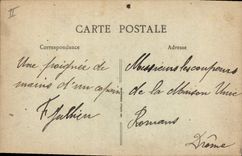 II
CARTE POSTALE
Correspondance
Adresse
Une poignée de
mains d'un copain
F. Jullien
Messieurs les coupeurs
de la maison Unic
Romans
Drôme